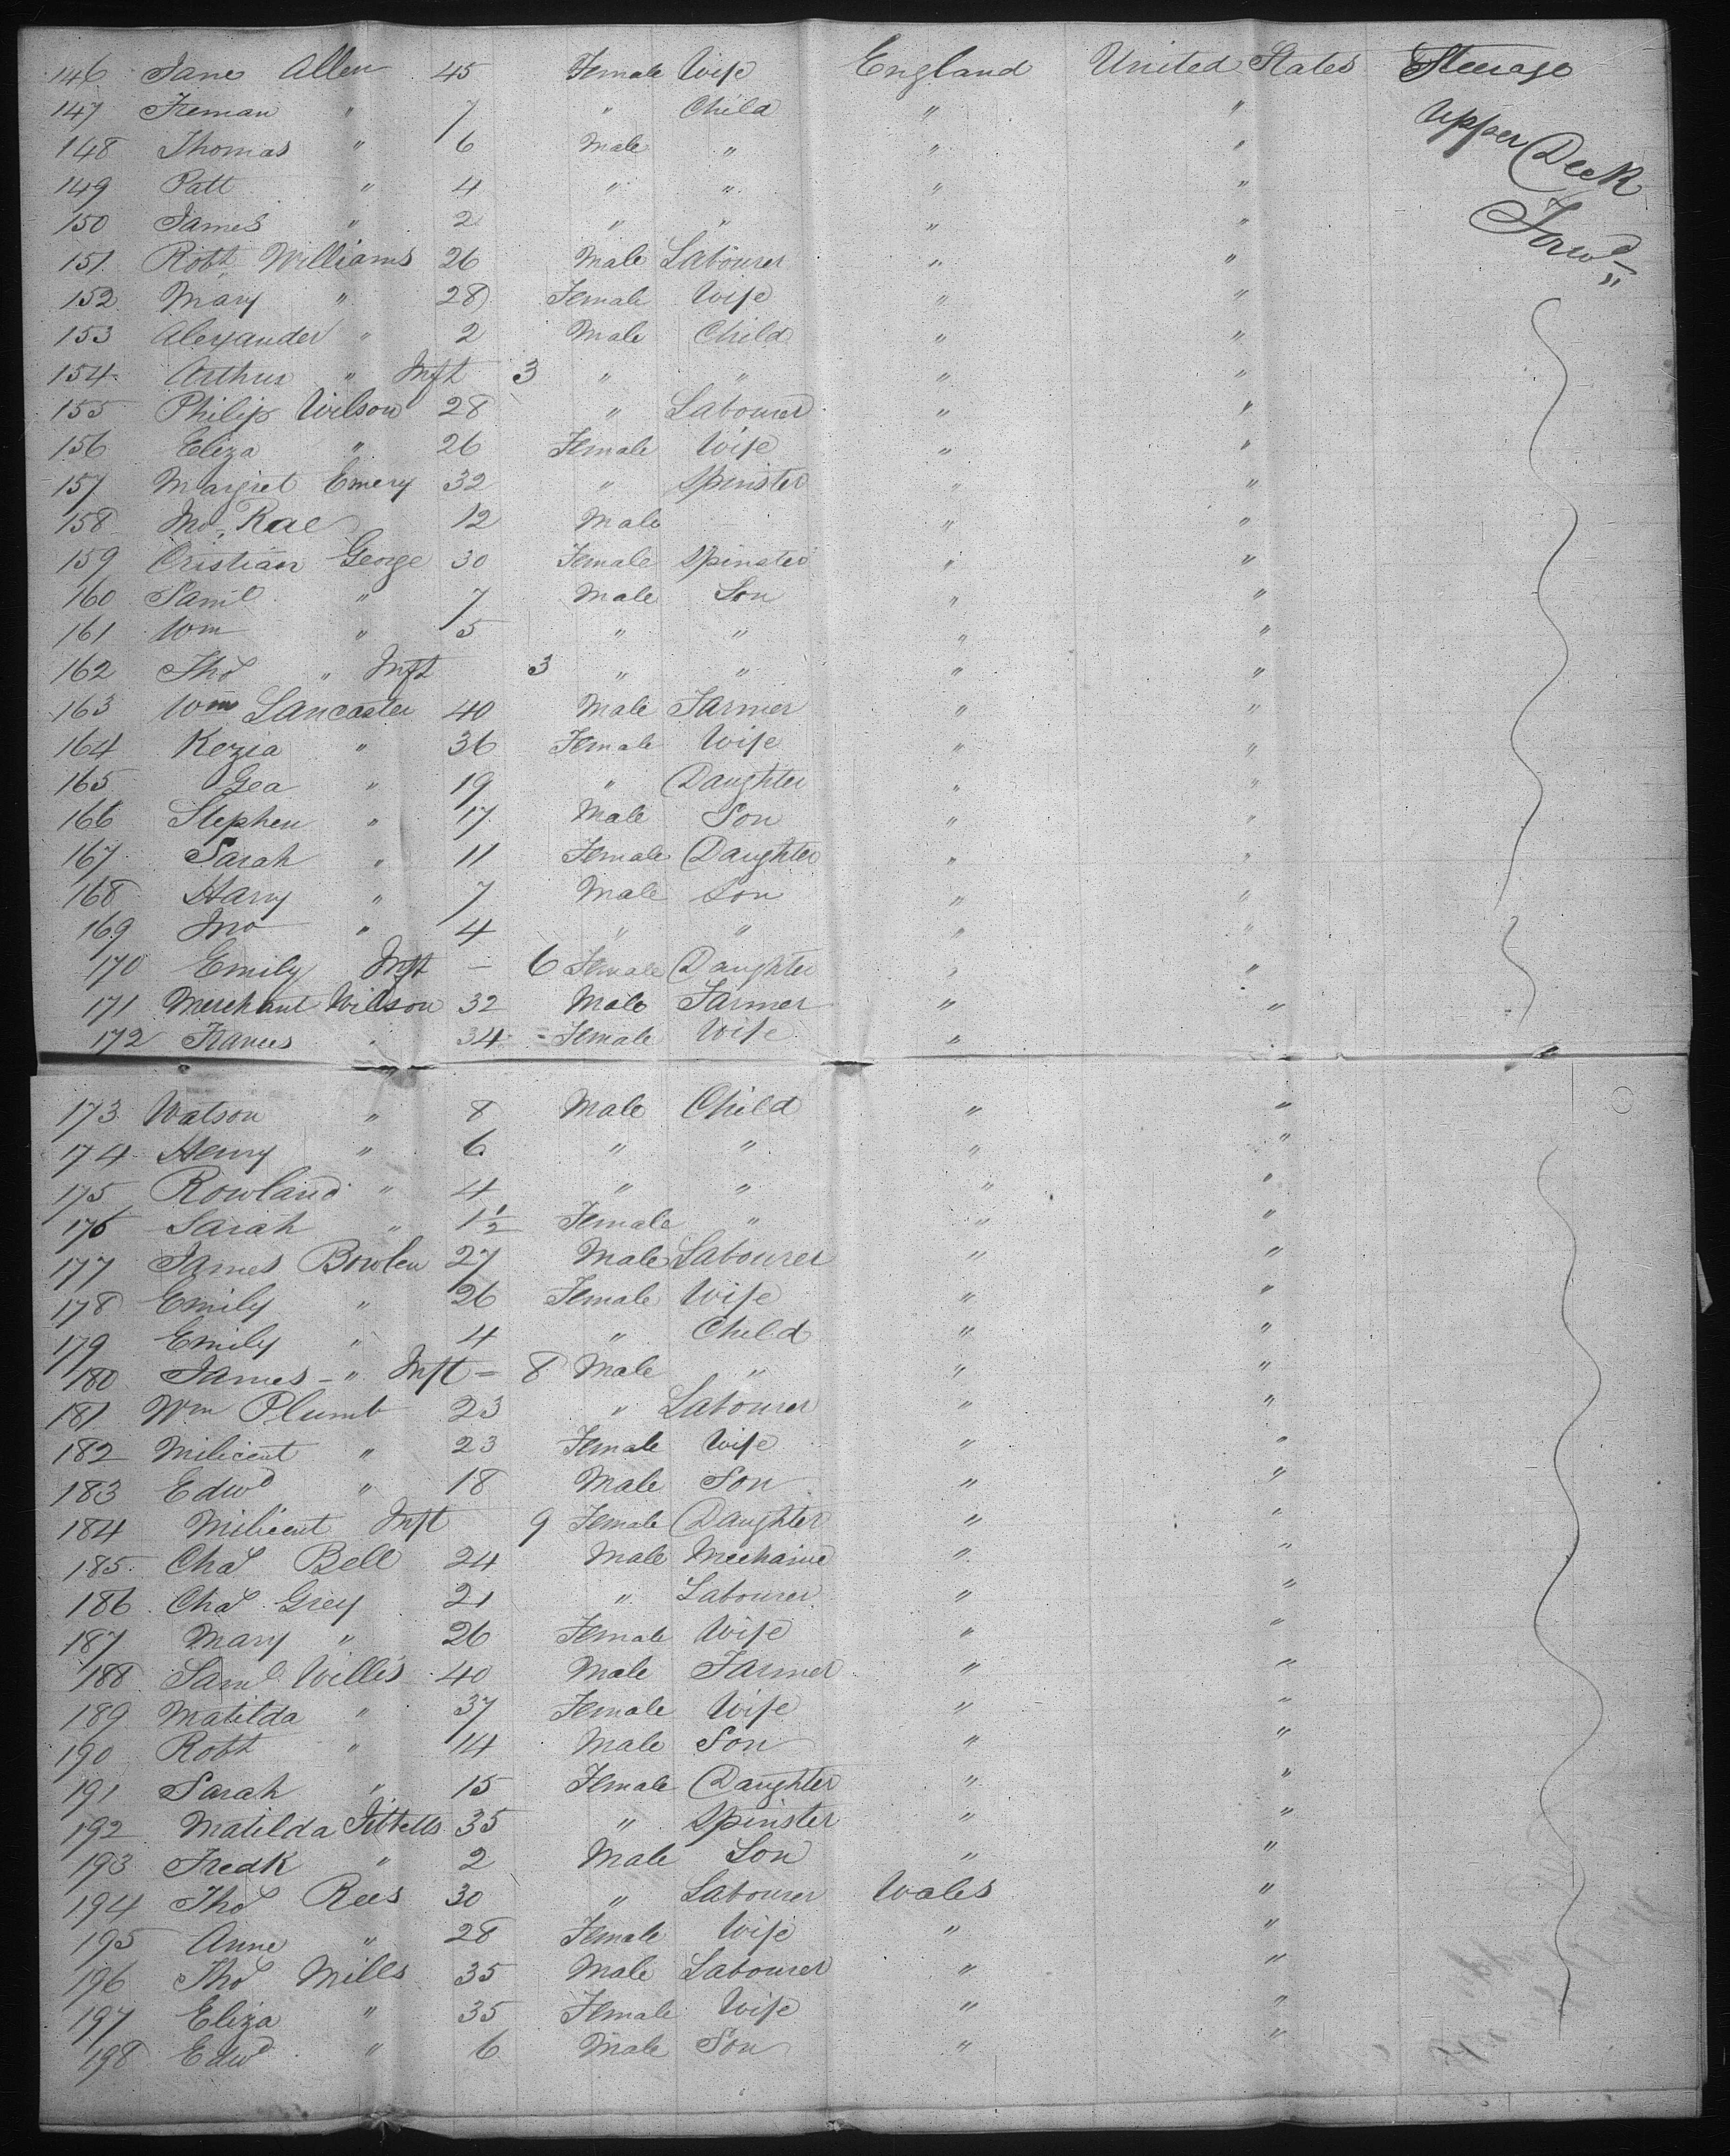 146 Jane Allen 45 Female Wife England United States Steerage
147 Freman " 7 " Child " " Upper Deck
148 Thomas " 6 Male " " "
149 Patt " 4 " " " " Forwd
150 James " 2 " " " "
151 Robt Williams 26 Male Labourer " "
152 Mary " 28 Female Wife " "
153 Alexander " 2 Male Child " "
154 Arthur " Inft 3 " " " "
155 Philip Wilson 28 " Labourer " "
156 Eliza " 26 Female Wife " "
157 Margret Emery 32 " Spinster " "
158 Jno Rae 12 Male " "
159 Cristian George 30 Female Spinster " "
160 Saml " 7 Male Son " "
161 Wm " 5 " " " "
162 Thos " Inft 3 " " " "
163 Wm Lancaster 40 Male Farmer " "
164 Kezia " 36 Female Wife " "
165 Gea " 19 " Daughter " "
166 Stephen " 17 Male Son " "
167 Sarah " 11 Female Daughter " "
168 Harry " 7 Male Son " "
169 Jno " 4 " " " "
170 Emily Inft - 6 Female Daughter " "
171 Merchant Wilson 32 Male Farmer " "
172 Frances " 34 Female Wife "
173 Watson " 8 Male Child " "
174 Henry " 6 " " " "
175 Rowland " 4 " " " "
176 Sarah " 1½ Female " " "
177 James Bowlen 27 Male Labourer " "
178 Emily " 26 Female Wife " "
179 Emily " 4 " Child " "
180 James - " Inft = 8 Male " " "
181 Wm Plumb 23 " Labourer " "
182 Milicent " 23 Female Wife " "
183 Edwd " 18 Male Son " "
184 Milicent Inft 9 Female Daughter " "
185 Chas Bell 24 Male Mechanic " "
186 Chas Grey 21 " Labourer " "
187 Mary " 26 Female Wife " "
188 Saml Willis 40 Male Farmer " "
189 Matilda " 37 Female Wife " "
190 Robt " 14 Male Son " "
191 Sarah " 15 Female Daughter " "
192 Matilda 35 " Spinster " "
193 Fredk " 2 Male Son " "
194 Thos Rees 30 " Labourer Wales "
195 Anne " 28 Female Wife " "
196 Thos Mills 35 Male Labourer " "
197 Eliza " 35 Female Wife " "
198 Edwd " 6 Male Son " "